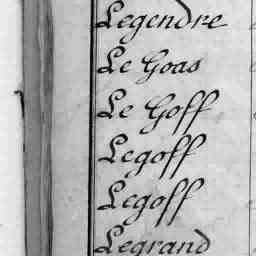 Legendre
Le Goas
Le Goff
Legoff
Legoff
Legrand